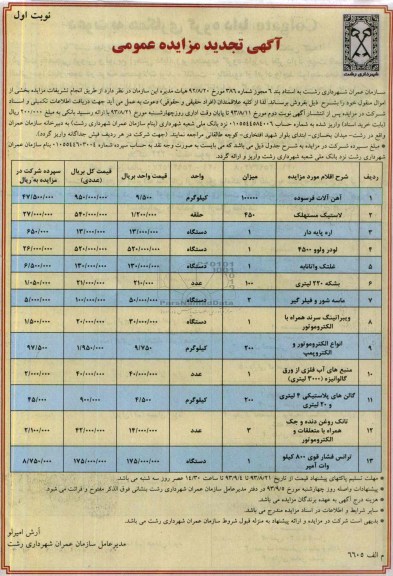 نوبت اول
آگهی تجدید مزایده عمومی
شهرداری رشت
سازمان عمران شهرداری رشت به استناد بند ۶ مجوز شماره ۳۸۶ مورخ ۹۲/۸/۲۰ هیات مدیره این سازمان در نظر دارد از طریق انجام تشریفات مزایده بخشی از
اموال منقول خود را بشرح ذیل بفروش برساند. لذا از کلیه علاقمندان (افراد حقیقی و حقوقی) دعوت به عمل می آید جهت دریافت اطلاعات تکمیلی و اسناد
شرکت در مزایده پس از انتشار آگهی نوبت دوم مورخ ۹۳/۸/۱۱ تا پایان وقت اداری روز چهارشنبه مورخ ۹۳/۸/۲۱ با ارائه رسید بانکی به مبلغ ۲۰۰/۰۰۰ ریال
واقع در رشت- میدان یخسازی- ابتدای بلوار شهید افتخاری- کوچه طالقانی مراجعه نمایند. (جهت شرکت در هر ردیف فیش جداگانه واریز گردد).
شهرداری رشت نزد بانک ملی شعبه شهرداری رشت واریز و ارائه گردد.
ردیف شرح اقلام مورد مزایده میزان واحد قیمت واحد بریال قیمت کل بریال (عددی) سپرده شرکت در مزایده به ریال
۱ آهن آلات فرسوده ۱۰۰۰۰۰ کیلوگرم ۹/۵۰۰ ۹۵۰/۰۰۰/۰۰۰ ۴۷/۵۰۰/۰۰۰
۲ لاستیک مستهلک ۴۵۰ حلقه ۱/۲۰۰/۰۰۰ ۵۴۰/۰۰۰/۰۰۰ ۲۷/۰۰۰/۰۰۰
۳ اره پایه دار ۱ دستگاه ۱۳/۰۰۰/۰۰۰ ۱۳/۰۰۰/۰۰۰ ۶۵۰/۰۰۰
۴ لودر ولوو ۴۵۰۰ ۱ دستگاه ۵۲۰/۰۰۰/۰۰۰ ۵۲۰/۰۰۰/۰۰۰ ۲۶/۰۰۰/۰۰۰
۵ غلتک واتانابه ۱ دستگاه ۱۳۰/۰۰۰/۰۰۰ ۱۳۰/۰۰۰/۰۰۰ ۶/۵۰۰/۰۰۰
۶ بشکه ۲۲۰ لیتری ۱۰۰ عدد ۲۱۰/۰۰۰ ۲۱/۰۰۰/۰۰۰ ۱/۰۵۰/۰۰۰
۷ ماسه شور و فیلر گیر ۲ دستگاه ۵۰/۰۰۰/۰۰۰ ۱۰۰/۰۰۰/۰۰۰ ۵/۰۰۰/۰۰۰
۸ ویبراتینگ سرند همراه با الکتروموتور ۱ دستگاه ۳۰/۰۰۰/۰۰۰ ۳۰/۰۰۰/۰۰۰ ۱/۵۰۰/۰۰۰
۹ انواع الکتروموتور و الکتروپمپ ۲۰۰ کیلوگرم ۹/۷۵۰ ۱/۹۵۰/۰۰۰ ۹۷/۵۰۰
۱۰ منبع های آب فلزی از ورق گالوانیزه (۳۰۰۰ لیتری) ۱ عدد ۴۰/۰۰۰/۰۰۰ ۴۰/۰۰۰/۰۰۰ ۲/۰۰۰/۰۰۰
۱۱ گالن های پلاستیکی ۴ لیتری و ۲۰ لیتری ۲۰۰ کیلوگرم ۴/۵۰۰ ۹۰۰/۰۰۰ ۴۵/۰۰۰
۱۲ تانک روغن دنده و جک همراه با متعلقات و الکتروموتور ۳ عدد ۱۴/۰۰۰/۰۰۰ ۴۲/۰۰۰/۰۰۰ ۲/۱۰۰/۰۰۰
۱۳ ترانس فشار قوی ۸۰۰ کیلو وات آمپر ۱ دستگاه ۱۷۵/۰۰۰/۰۰۰ ۱۷۵/۰۰۰/۰۰۰ ۸/۷۵۰/۰۰۰
* مهلت تسلیم پاکتهای پیشنهاد قیمت از تاریخ ۹۳/۸/۲۱ تا ۹۳/۹/۴ تا ساعت ۱۴/۳۰ عصر روز سه شنبه می باشد.
* پیشنهادات واصله روز چهارشنبه مورخ ۹۳/۹/۵ در دفتر مدیرعامل سازمان عمران شهرداری رشت بنشانی فوق الذکر مفتوح و قرائت می شود.
* هزینه درج آگهی به عهده برندگان مزایده می باشد.
* سایر شرایط و اطلاعات در اسناد مزایده مندرج می باشد.
* بدیهی است شرکت در مزایده و ارائه پیشنهاد به منزله قبول شروط سازمان عمران شهرداری رشت می باشد.
آرش امیرلو
مدیرعامل سازمان عمران شهرداری رشت
م الف ۶۶۰۵